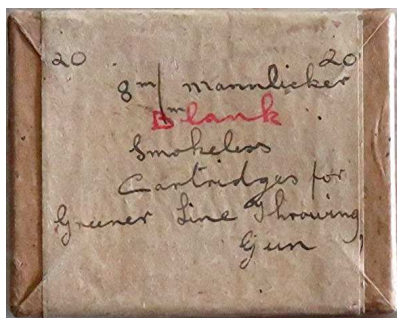 20 20
8 m/m Mannlicker
Blank
Smokeless
Cartridges for
Greener Line Throwing
Gun